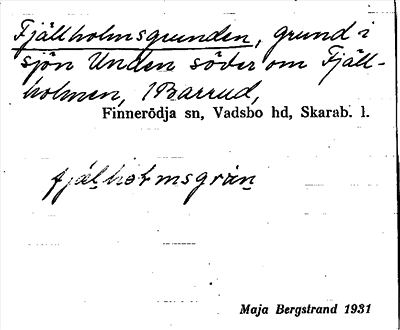 Fjällholmsgrunden, grund i
sjön Unden söder om Fjäll-
holmen, /Barrud,
Finnerödja sn, Vadsbo hd, Skarab. l.
Maja Bergstrand 1931